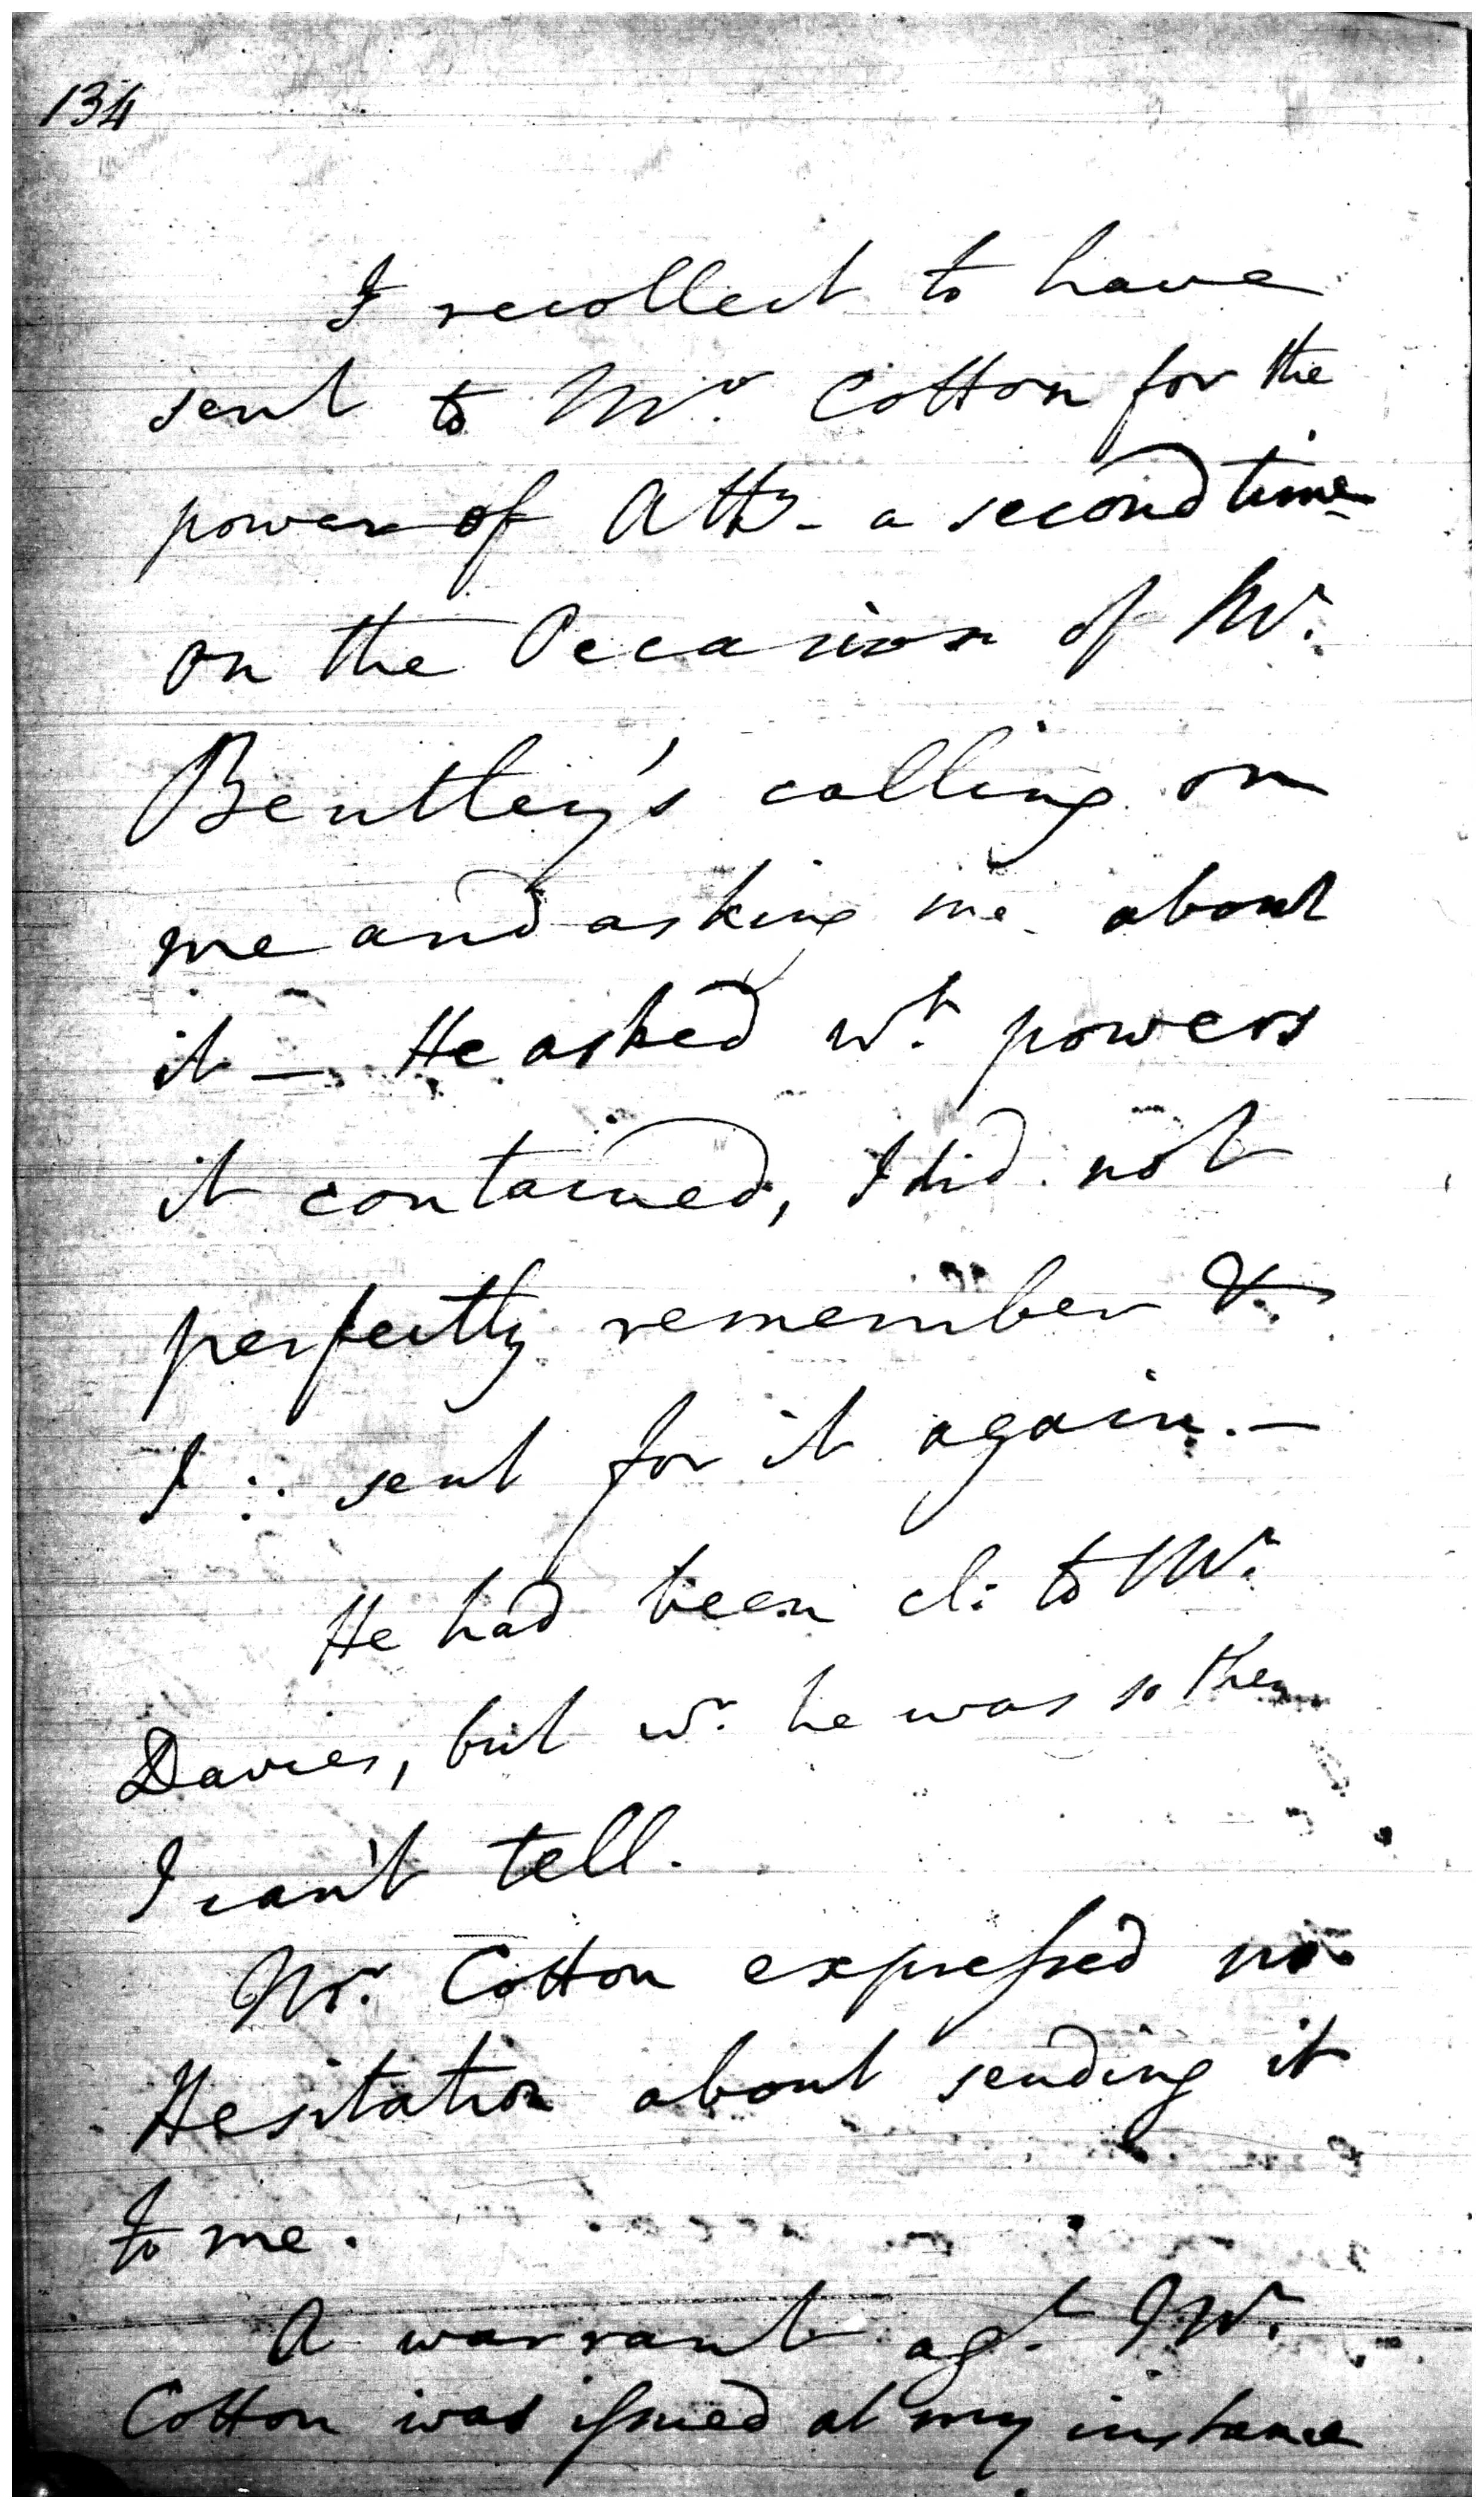 134
I recollect to have
sent to Mr. Cotton for the
power of Atty - a second time
on the Occasion of Mr.
Bentley's calling on
me and asking me about
it — He asked wt. powers
it contained, I did not
perfectly remember &
I ∴ sent for it again. —
He had been cl: to Mr.
Davies, but wr. he was so then
I can't tell.
Mr. Cotton expressed no
Hesitation about sending it
to me.
A warrant agt. Mr.
Cotton was issued at my instance